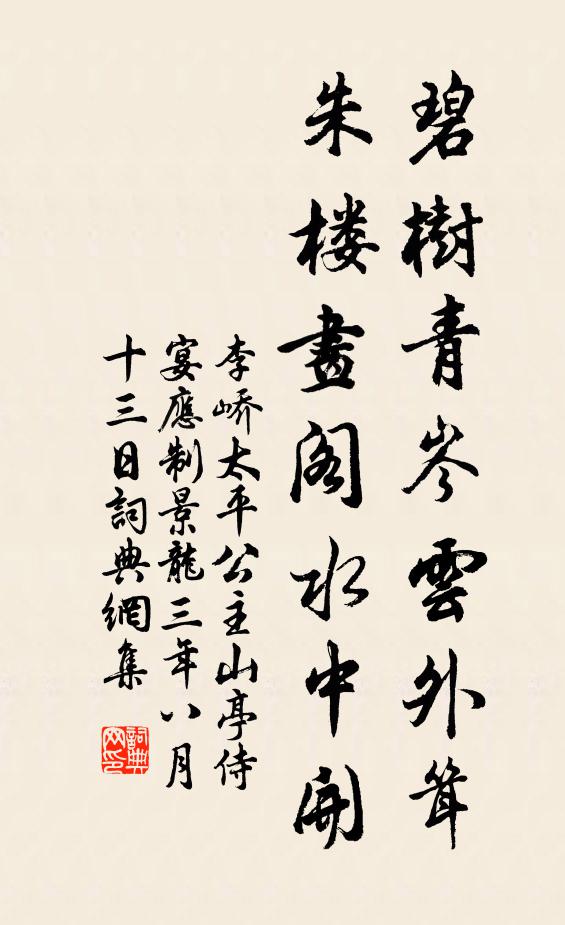 碧樹青岑雲外聳
朱楼畫阁水中開
李峤太平公主山亭侍
宴應制景龍三年八月
十三日詞典網集
詞典网印